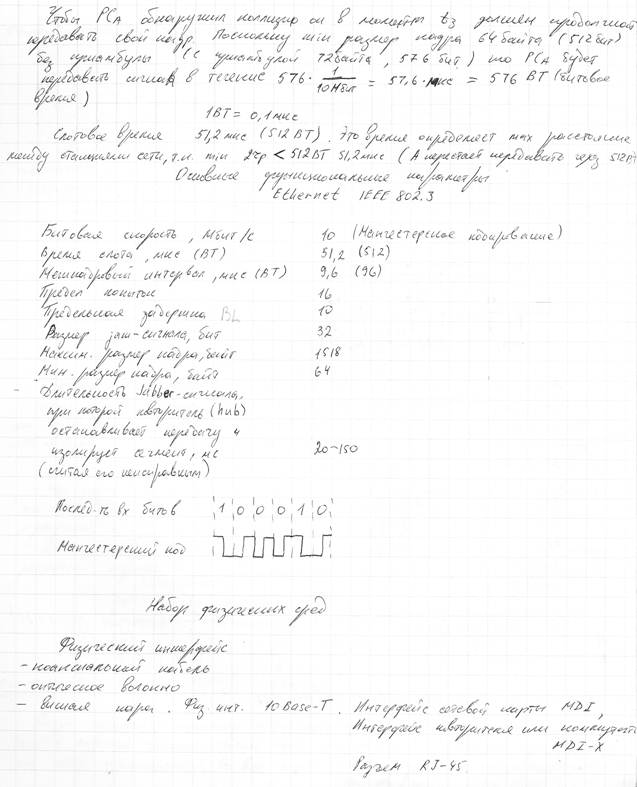 Чтобы PCA обнаружил коллизию он в момент t3 должен продолжать
передавать свой кадр. Поскольку min размер кадра 64 байта (512 бит)
без преамбулы (с преамбулой 72 байта, 576 бит) то PCA будет
передавать сигнал в течение 576 · 1/10Мбит = 57,6 мкс = 576 BT (битовое
время)
1BT = 0,1 мкс
Слотовое время 51,2 мкс (512 BT). Это время определяет max расстояние
между станциями сети, т.к. min 2tp < 512BT 51,2 мкс (A перестаёт передавать через 512BT
Основные функциональные параметры
Ethernet IEEE 802.3
Битовая скорость, Мбит/с 10 (Манчестерское кодирование)
Время слота, мкс (BT) 51,2 (512)
Межкадровый интервал, мкс (BT) 9,6 (96)
Предел попыток 16
Предельная задержка BL 10
Размер jam-сигнала, бит 32
Максим. размер кадра, байт 1518
Мин. размер кадра, байт 64
- Длительность Jabber-сигнала,
при которой повторитель (hub)
останавливает передачу и
изолирует сегмент, мс 20-150
(считая его неисправным)
Послед-ть вх битов 1 0 0 0 1 0
Манчестерский код
Набор физических сред
Физический интерфейс
- коаксиальный кабель
- оптическое волокно
- витая пара. Физ. инт. 10Base-T. Интерфейс сетевой карты MDI,
Интерфейс повторителя или коммутато
MDI-X
Разъем RJ-45.